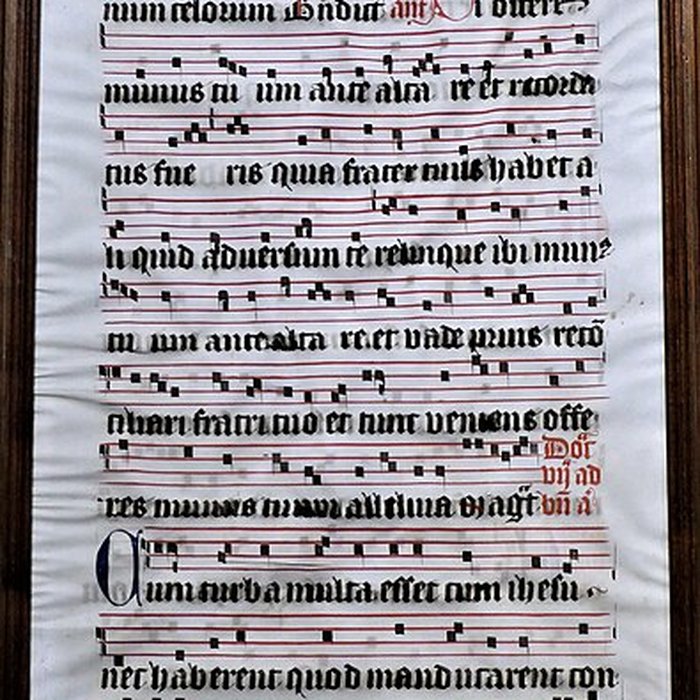 num celorum Bñdict̃ antͣ Si offers
munus tu um ante alta re et recorda
tus fue ris quia frater tuus habet a
li quid aduersum te relinque ibi mun⁹
tu um ante alta re et vade prius recõ
ciliari fratri tuo et tunc veniens offe
res munus tuum alleluia Mag̃t Doͫ vij ad vñ aͣ
Cum turba multa esset cum ihesu
nec haberent quod manducarent con